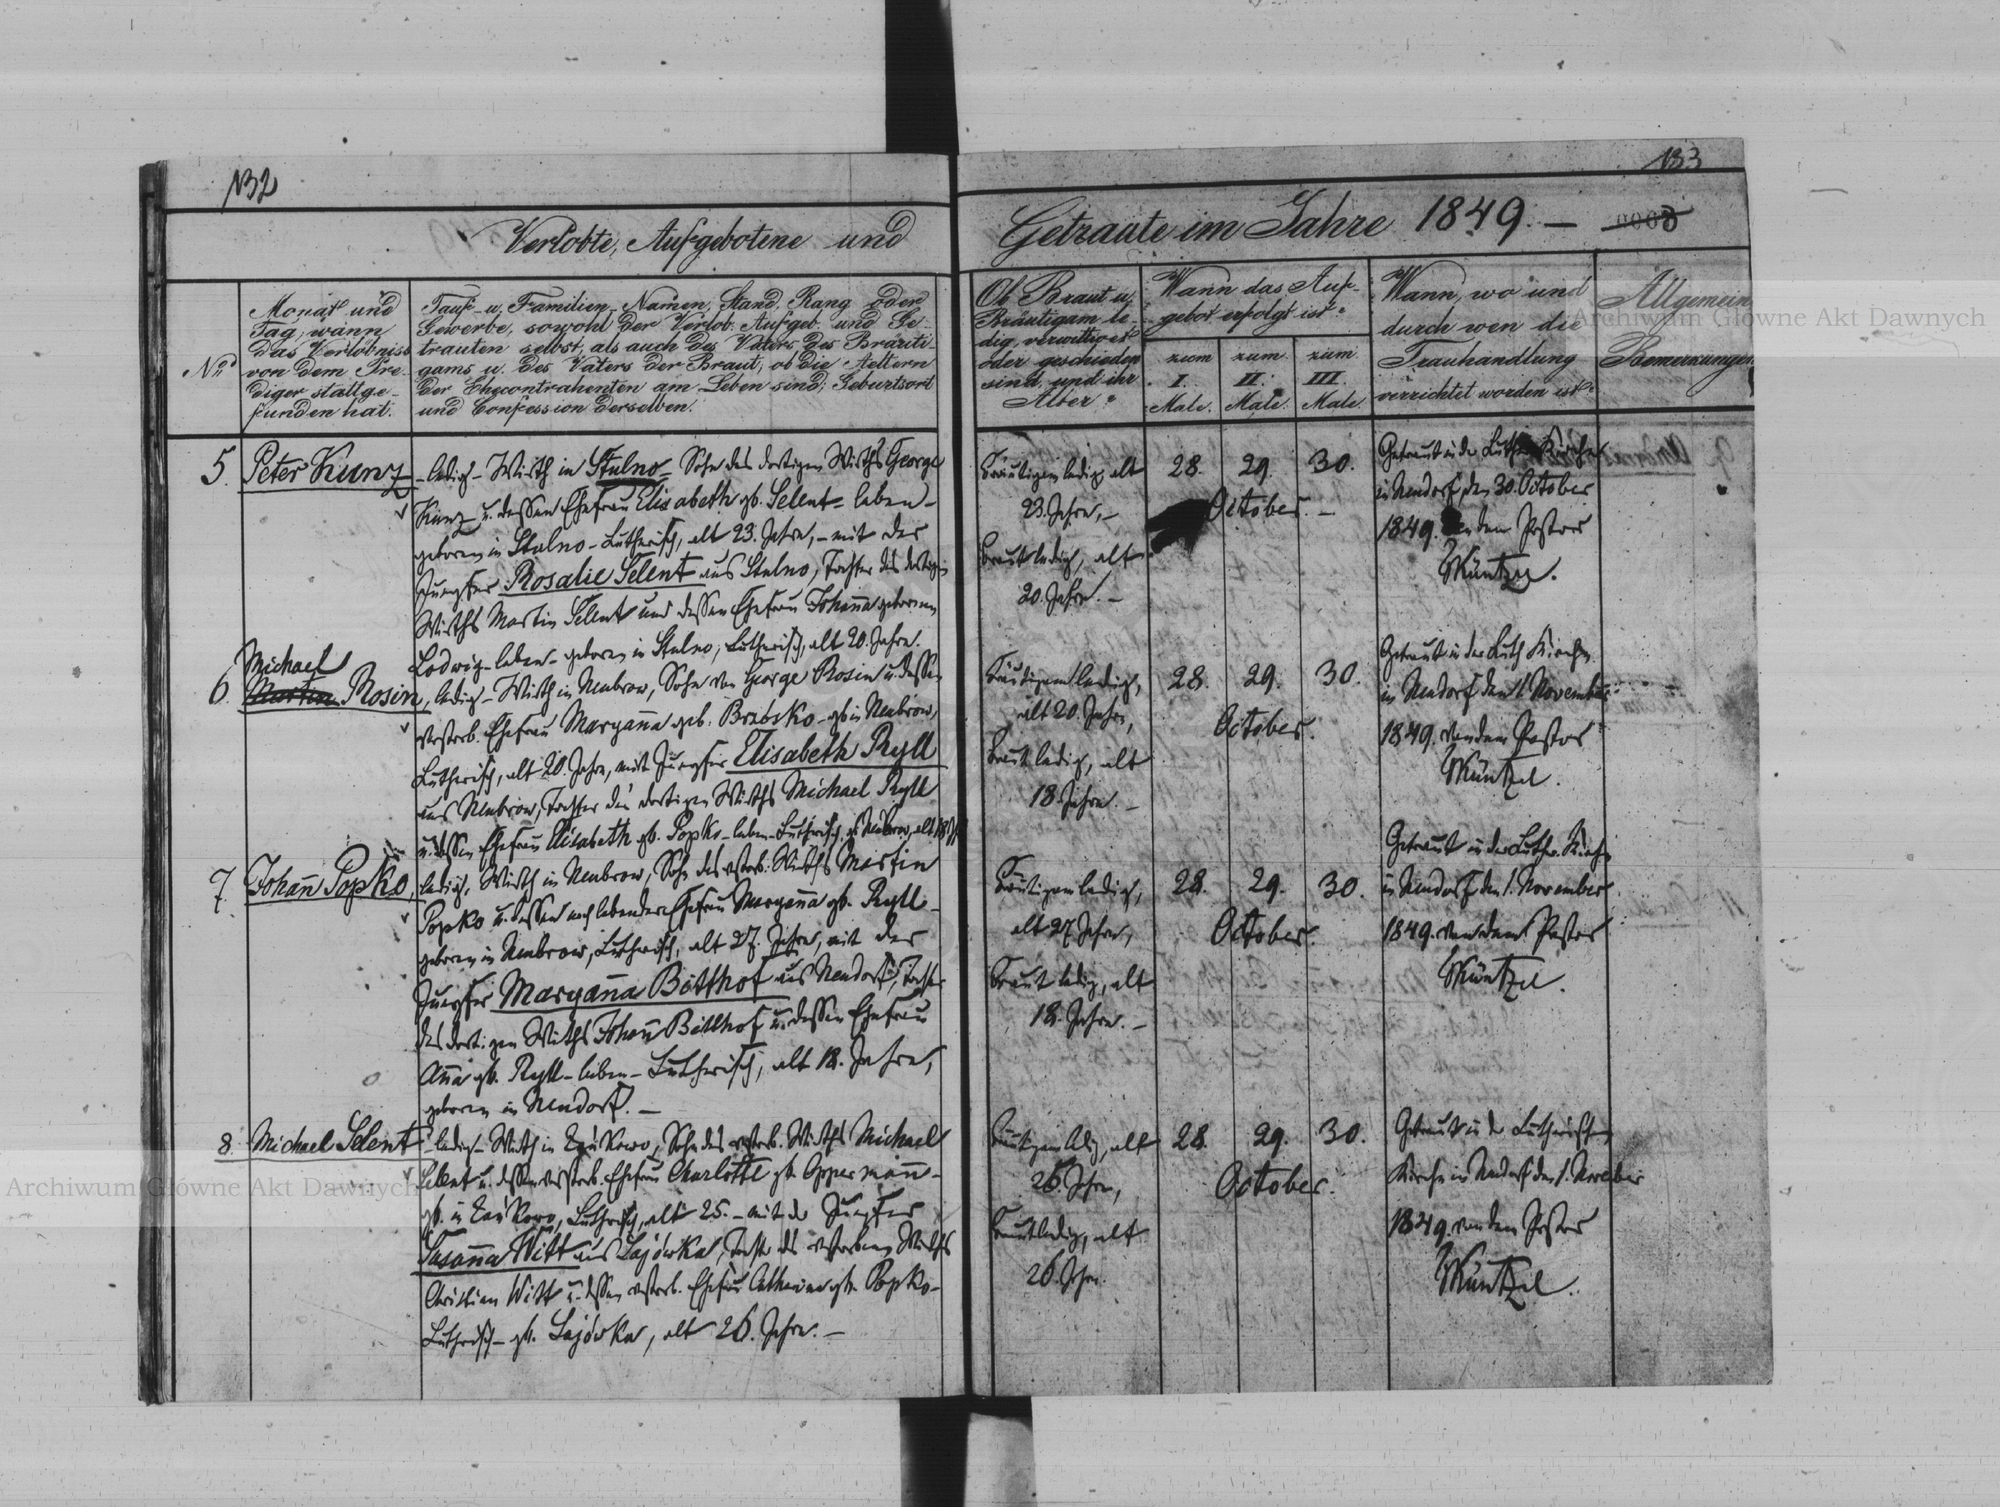 132
Verlobte, Aufgebotene und
Nro
Monat und
Tag, wann
das Verlöbniss
von dem Pre-
diger stattge-
funden hat.
Tauf- u. Familien-Namen, Stand, Rang oder
Gewerbe, sowohl der Verlob. Aufgeb. und Ge-
trauten selbst, als auch des Vaters des Bräuti-
gams u. des Vaters der Braut; ob die Aeltern
der Ehecontrahenten am Leben sind; Geburtsort
und Confession derselben.
5. Peter Kunz
- ledig - Wirth in Stulno - Sohn des dortigen Wirths George
Kunz u. dessen Ehefrau Elisabeth gb. Selent - leben -
geboren in Stulno - Lutherisch, alt 23. Jahre, - mit der
Jungfer Rosalie Selent aus Stulno, Tochter des dortigen
Wirths Martin Selent und dessen Ehefrau Johanna geborenen
Ludwig - leben - geboren in Stulno, Lutherisch, alt 20. Jahre.
Michael
6. Martin Rosin,
ledig - Wirth in Neubrow, Sohn von George Rosin u. dessen
verstorb. Ehefrau Maryanna geb. - gb in Neubrow,
Lutherisch, alt 20. Jahre, mit Jungfer Elisabeth Ryll
aus Neubrow, Tochter des dortigen Wirths Michael Ryll
u. dessen Ehefrau Elisabeth gb. Popko - leben - Lutherisch, gb Neubrow, alt 18 J.
7. Johann Popko
ledig, Wirth in Neubrow, Sohn des verstorb. Wirths Martin
Popko u. dessen noch lebenden Ehefrau Maryanna gb. Ryll -
geboren in Neubrow, Lutherisch, alt 27. Jahre, mit der
Jungfer Maryanna Bütthof aus Neudorf, Tochter
des dortigen Wirths Johann Bütthof u. dessen Ehefrau
Anna gb. Ryll - leben - Lutherisch, alt 18. Jahre,
geboren in Neudorf. -
8. Michael Selent
- ledig - Wirth in Sohn des verstorb. Wirths Michael
Selent u. dessen verstorb. Ehefrau Charlotte gb Oppermann -
gb. in Lutherisch, alt 25. - mit der Jungfer
Susanna Witt aus Sajówka, Tochter des verstorbenen Wirths
Christian Witt u. dessen verstorb. Ehefrau Catharina gb. Popko -
Lutherisch - gb. Sajówka, alt 26. Jahre. -
133
Getraute im Jahre 1849. -
Ob Braut u.
Bräutigam le-
dig, verwittwet
oder geschieden
sind, und ihr
Alter.
Wann das Auf-
gebot erfolgt ist.
zum I. Male.
zum II. Male.
zum III. Male.
Wann, wo und
durch wen die
Trauhandlung
verrichtet worden ist.
Allgemein
Bemerkungen
Bräutigam ledig, alt
23. Jahre, -
Braut ledig, alt
20. Jahre. -
28. 29. 30.
October. -
Getraut in der Luth. Kirche
in Neudorf den 30. October
1849. von dem Pastor
Müntzel.
Bräutigam ledig,
alt 20. Jahre,
Braut ledig, alt
18 Jahre. -
28. 29. 30.
October.
Getraut in der Luth Kirche
in Neudorf den 1 November
1849. von dem Pastor
Müntzel.
Bräutigam ledig,
alt 27 Jahre,
Braut ledig, alt
18. Jahre. -
28. 29. 30.
October.
Getraut in der Luther. Kirche
in Neudorf den 1. November
1849. von dem Pastor
Müntzel.
Bräutigam ledig, alt
Jahre,
Braut ledig, alt
26. Jahre.
28. 29. 30.
October.
Getraut in der Lutherischen
Kirche in Neudorf den 1. November
1849. von dem Pastor
Müntzel.
Archiwum Główne Akt Dawnych
Archiwum Główne Akt Dawnych